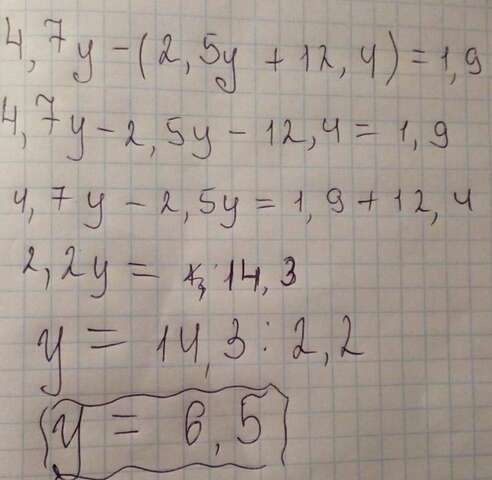 4,7y - (2,5y + 12,4) = 1,9
4,7y - 2,5y - 12,4 = 1,9
4,7y - 2,5y = 1,9 + 12,4
2,2y = 14,3
y = 14,3 : 2,2
y = 6,5